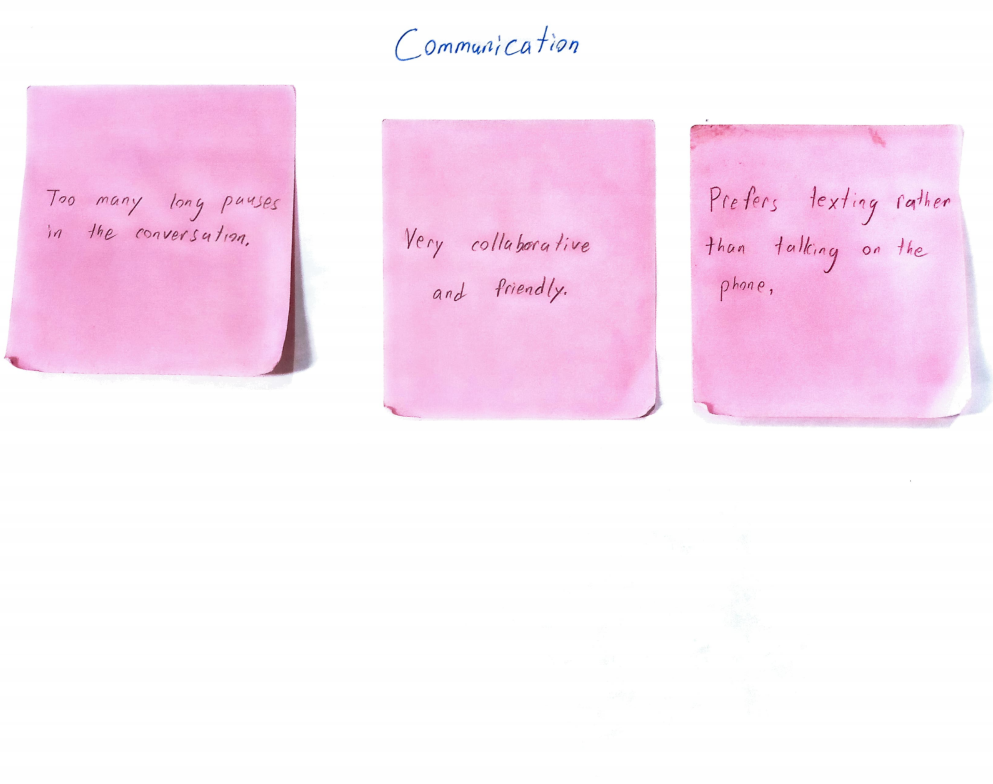 Communication
Too many long pauses
in the conversation.
Very collaborative
and friendly.
Prefers texting rather
than talking on the
phone,